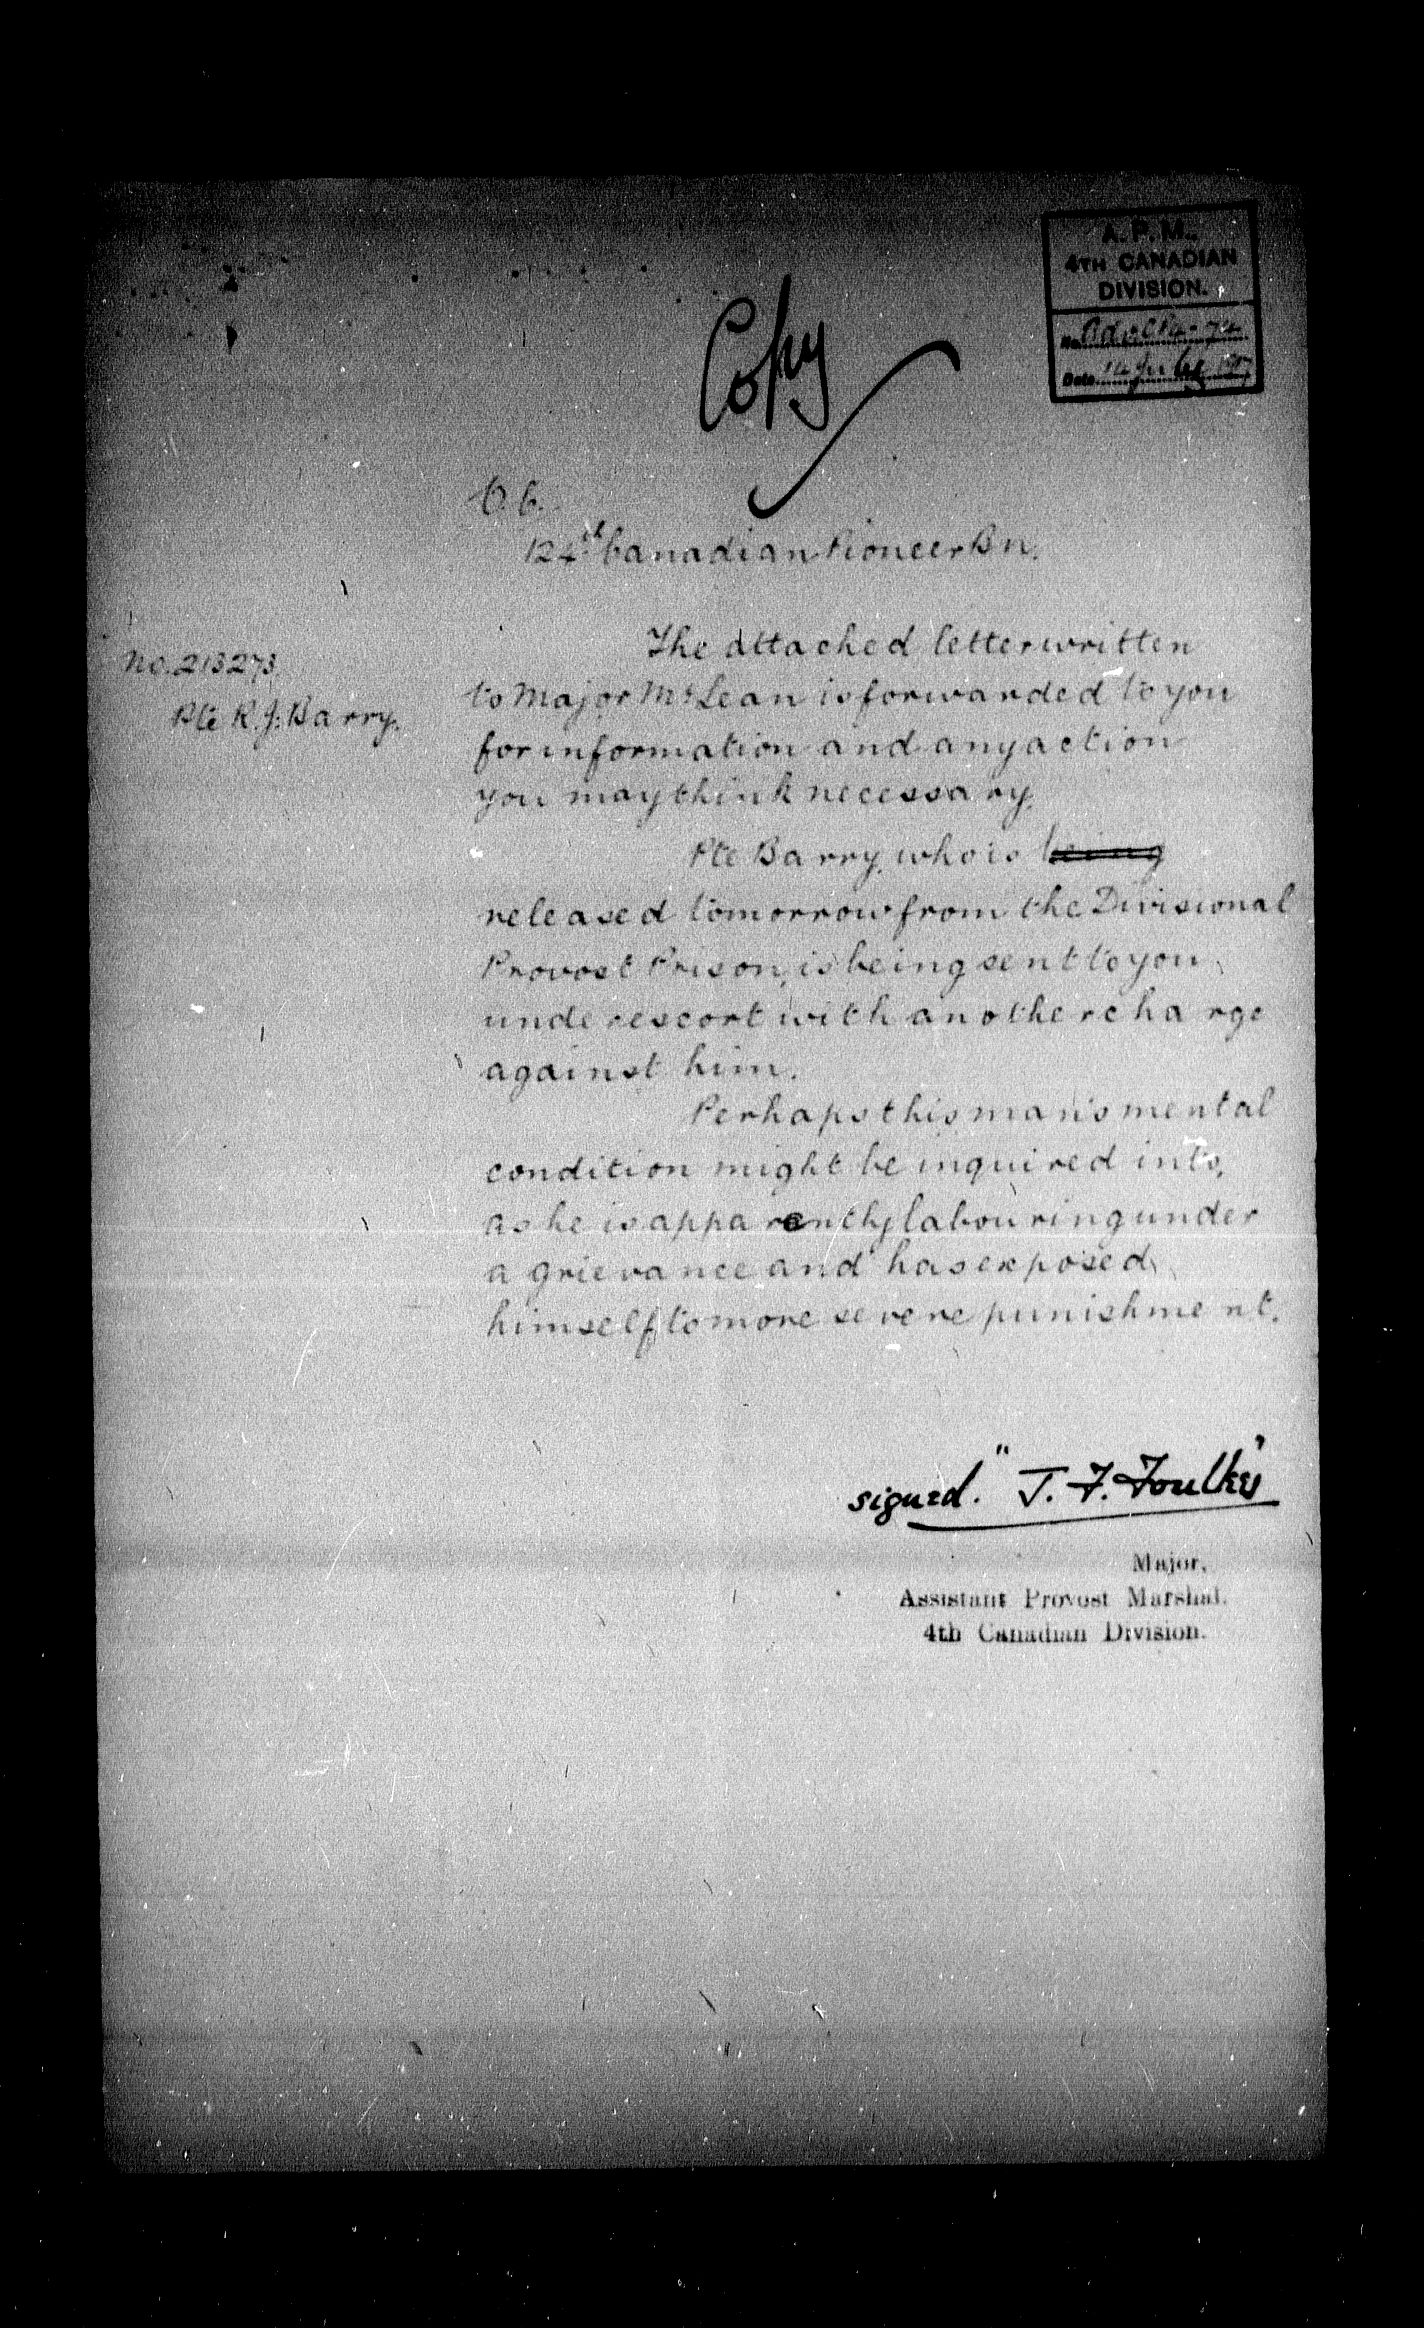 A. P. M.
4TH CANADIAN
DIVISION.
No.
Date 14 July 1917
Copy
O.C.
124th Canadian Pioneer Bn.
No. 213273
Pte R.J. Barry.
The attached letter written
to Major McLean is forwarded to you
for information and any action
you may think necessary.
Pte Barry, who is being
released tomorrow from the Divisional
Provost Prison, is being sent to you
under escort with another charge
against him.
Perhaps this man's mental
condition might be inquired into,
as he is apparently labouring under
a grievance and has exposed
himself to more severe punishment.
signed. "J. F. Foulkes"
Major,
Assistant Provost Marshal.
4th Canadian Division.